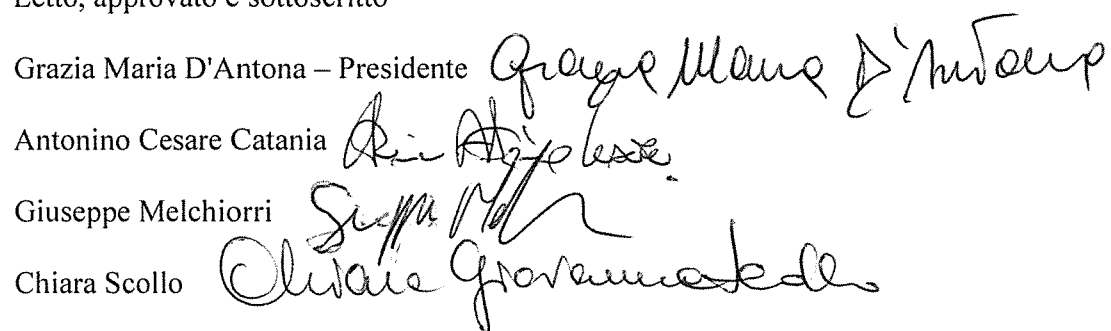 Letto, approvato e sottoscritto
Grazia Maria D'Antona – Presidente Grazia Maria D'Antona
Antonino Cesare Catania
Giuseppe Melchiorri
Chiara Scollo Chiara Giovanna Scollo